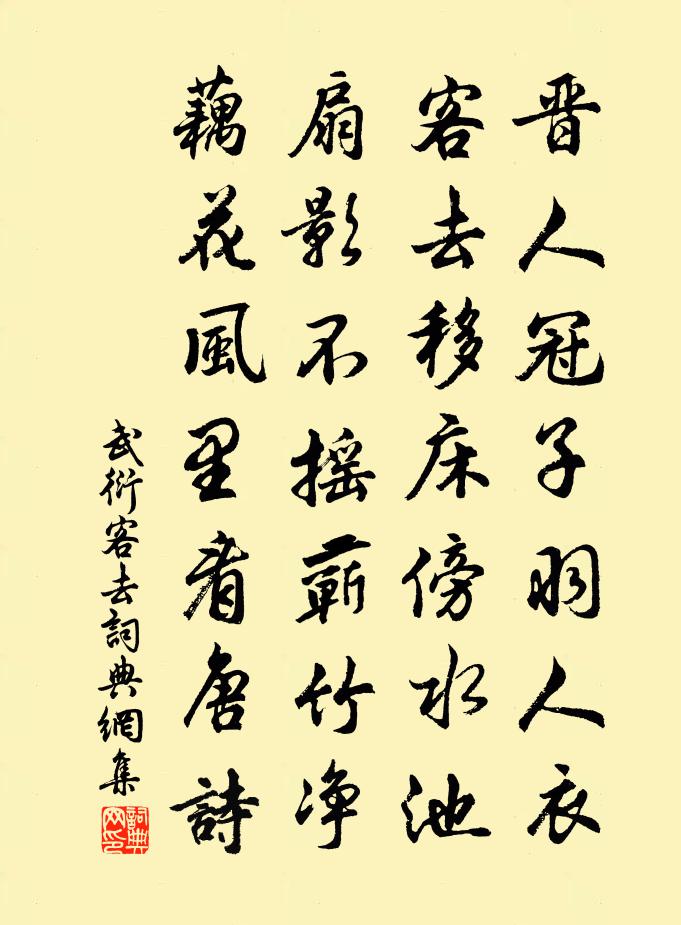 晋人冠子羽人衣
客去移床傍水池
扇影不摇蕲竹净
藕花風里看唐詩
武衍客去詞典網集
詞典网印